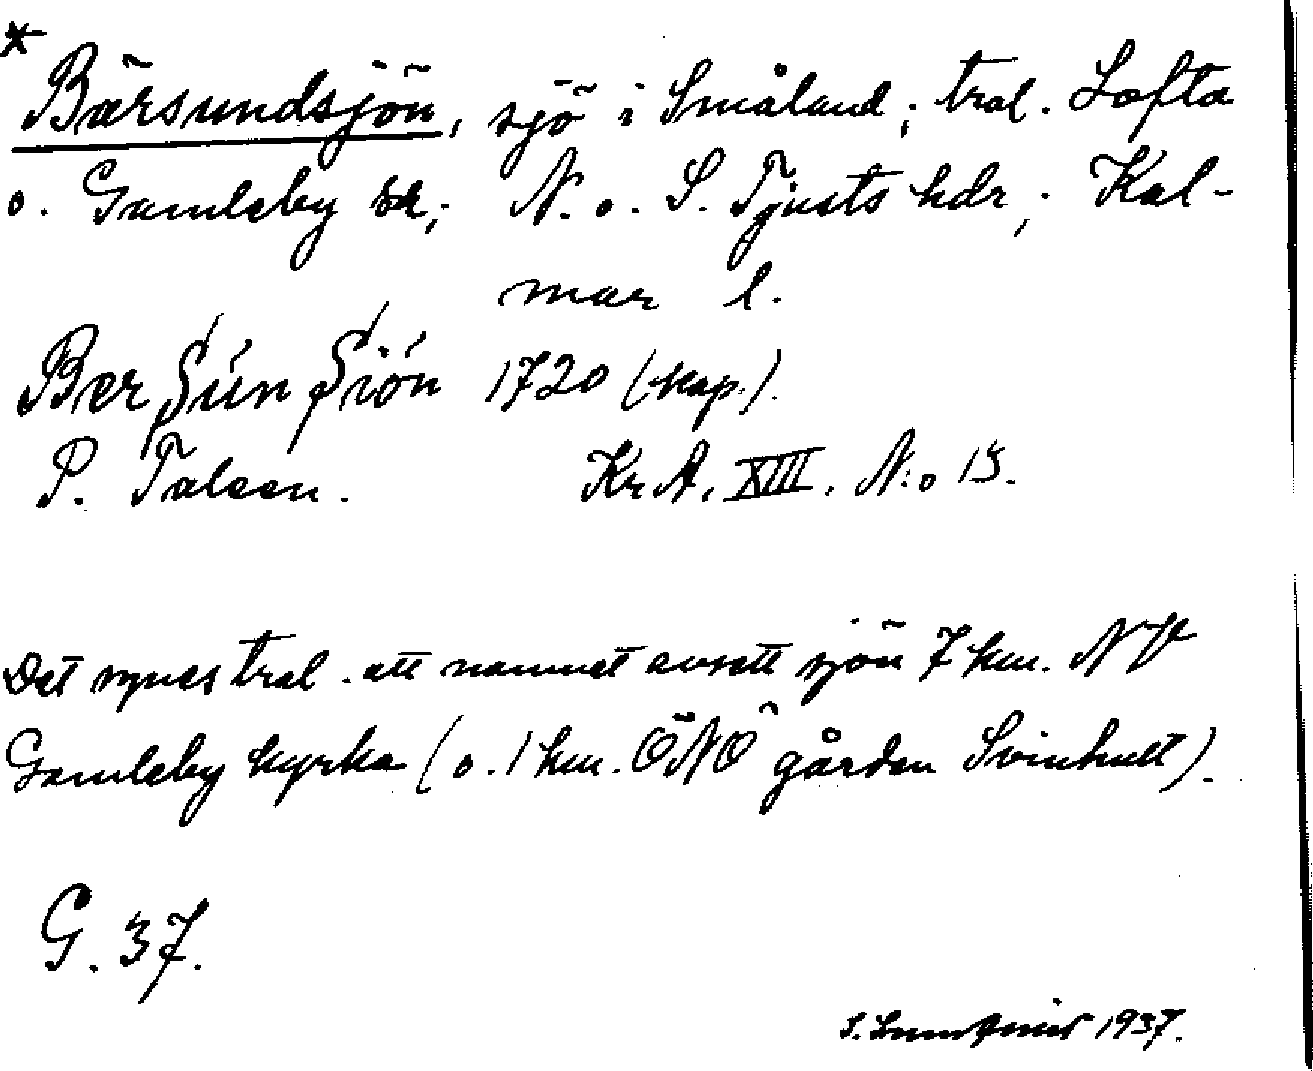 *
Bärsundsjön, sjö i Småland; trol. Lofta
o. Gamleby sr; N. o. S. Tjusts hdr; Kal-
mar l.
Ber Sún Siön 1720 (kop.).
P. Taleen. KrA. XIII. N:o 15.
Det synes trol. att namnet avsett sjön 7 km. NV
Gamleby kyrka (o. 1 km. ÖNÖ gården Svinhult).
G. 37.
S. Lundqvist 1937.